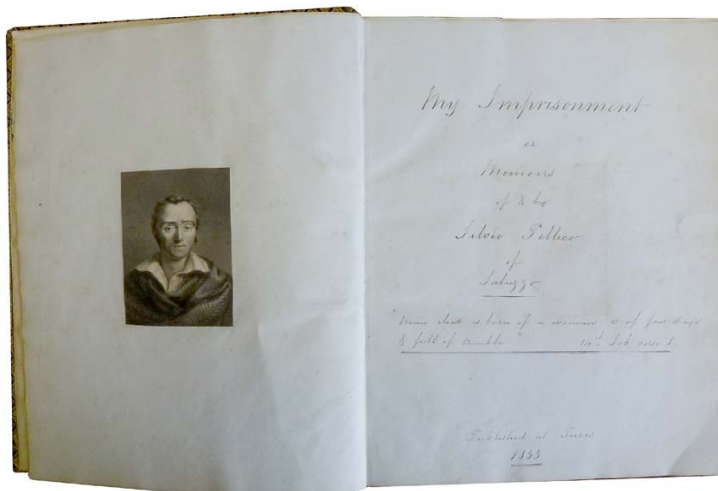 My Imprisonment
or
Memoirs
of & by
Silvio Pellico
of
Saluzzo
"Man that is born of a woman is of few days
& full of trouble" 14th Job verse 1
Published at Turin
1833